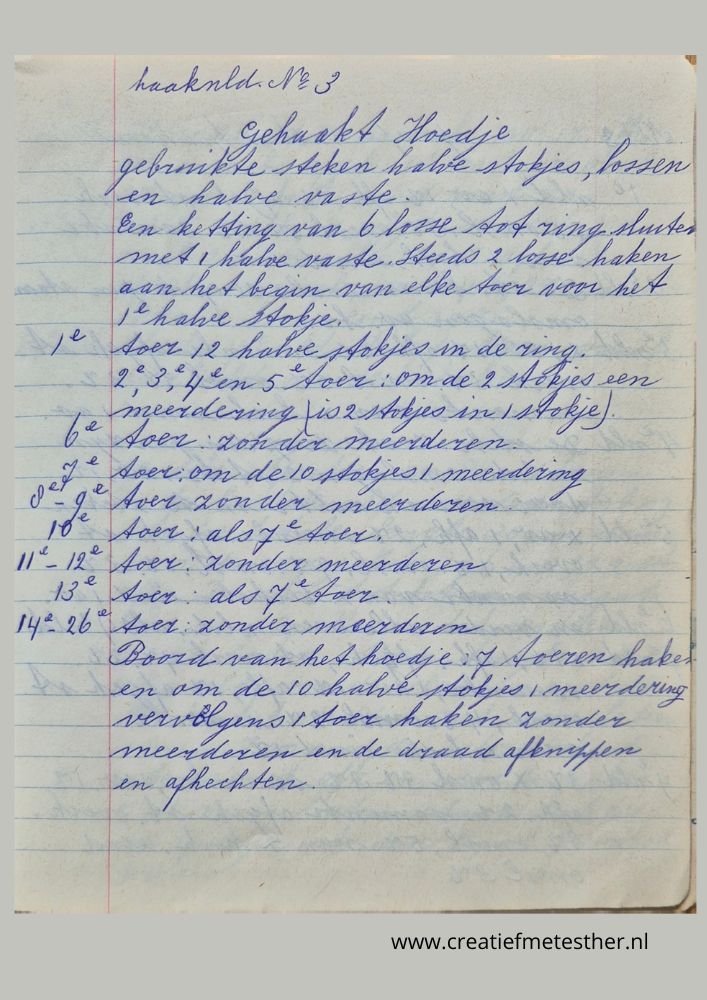 haaknld. Nº 3
Gehaakt Hoedje
gebruikte steken halve stokjes, lossen
en halve vaste.
Een ketting van 6 losse tot ring sluiten
met 1 halve vaste. Steeds 2 losse haken
aan het begin van elke toer voor het
1e halve stokje.
1e toer 12 halve stokjes in de ring.
2e, 3e, 4e en 5e toer: om de 2 stokjes een
meerdering (is 2 stokjes in 1 stokje).
6e toer: zonder meerderen.
7e toer: om de 10 stokjes 1 meerdering
8e - 9e toer zonder meerderen.
10e toer: als 7e toer.
11e - 12e toer: zonder meerderen
13e toer: als 7e toer.
14e - 26e toer: zonder meerderen
Boord van het hoedje: 7 toeren haken
en om de 10 halve stokjes 1 meerdering
vervolgens 1 toer haken zonder
meerderen en de draad afknippen
en afhechten.
www.creatiefmetesther.nl